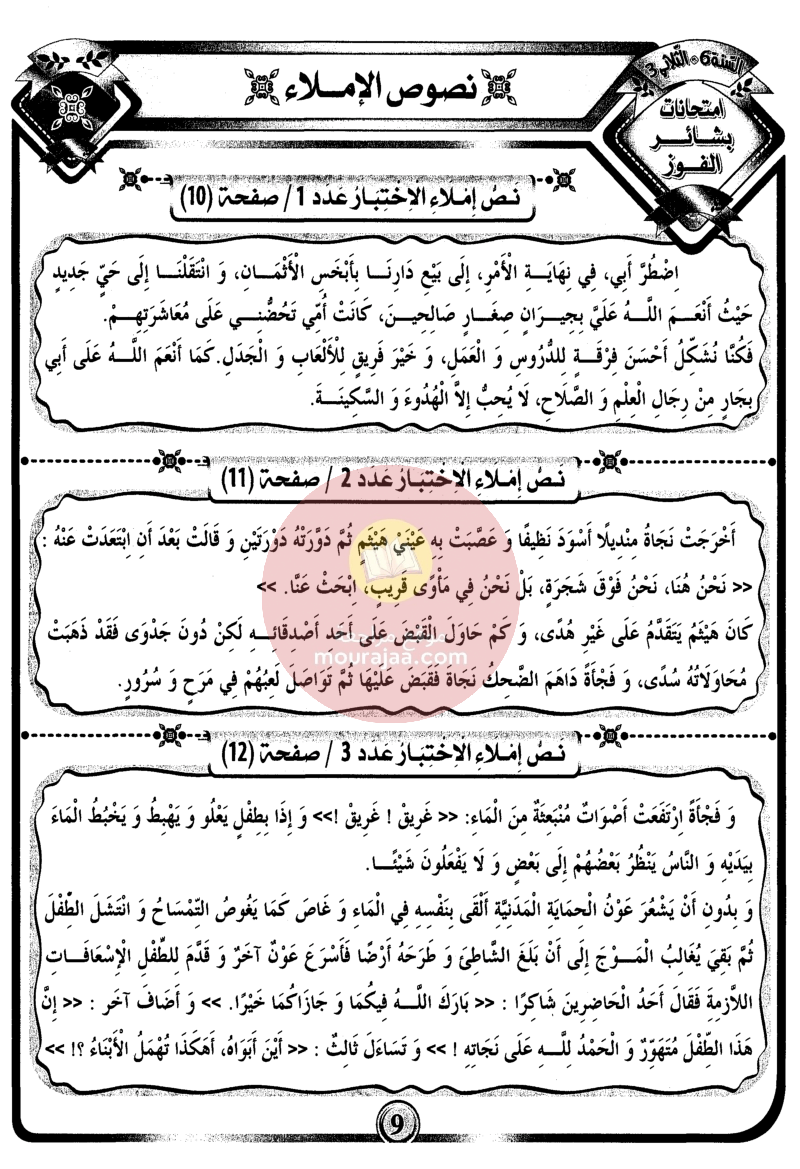 السّنة 6 • الثّلاثي 3
نصوص الإملاء
امتحانات
بشائر
الفوز
نَصُّ إِمْلَاءِ الاِخْتِبَارُ عَدَد 1 / صفحة (10)
اِضْطُرَّ أَبِي، فِي نِهَايَةِ الْأَمْرِ، إِلَى بَيْعِ دَارِنَا بِأَبْخَسِ الْأَثْمَانِ، وَ انْتَقَلْنَا إِلَى حَيٍّ جَدِيدٍ
حَيْثُ أَنْعَمَ اللَّهُ عَلَيَّ بِجِيرَانٍ صِغَارٍ صَالِحِينَ، كَانَتْ أُمِّي تَحُضُّنِي عَلَى مُعَاشَرَتِهِمْ.
فَكُنَّا نُشَكِّلُ أَحْسَنَ فِرْقَةٍ لِلدُّرُوسِ وَ الْعَمَلِ، وَ خَيْرَ فَرِيقٍ لِلْأَلْعَابِ وَ الْجَدَلِ.كَمَا أَنْعَمَ اللَّهُ عَلَى أَبِي
بِجَارٍ مِنْ رِجَالِ الْعِلْمِ وَ الصَّلَاحِ، لَا يُحِبُّ إِلاَّ الْهُدُوءَ وَ السَّكِينَةَ.
نَصُّ إِمْلَاءِ الاِخْتِبَارُ عَدَد 2 / صفحة (11)
أَخْرَجَتْ نَجَاةُ مِنْدِيلًا أَسْوَدَ نَظِيفًا وَ عَصَّبَتْ بِهِ عَيْنَيْ هَيْثَمٍ ثُمَّ دَوَّرَتْهُ دَوْرَتَيْنِ وَ قَالَتْ بَعْدَ أَنِ ابْتَعَدَتْ عَنْهُ :
<< نَحْنُ هُنَا، نَحْنُ فَوْقَ شَجَرَةٍ، بَلْ نَحْنُ فِي مَأْوًى قَرِيبٍ، اِبْحَثْ عَنَّا. >>
كَانَ هَيْثَمُ يَتَقَدَّمُ عَلَى غَيْرِ هُدًى، وَ كَمْ حَاوَلَ الْقَبْضَ عَلَى أَحَدِ أَصْدِقَائِهِ لَكِنْ دُونَ جَدْوَى فَقَدْ ذَهَبَتْ
مُحَاوَلَاتُهُ سُدًى، وَ فَجْأَةً دَاهَمَ الضَّحِكُ نَجَاةَ فَقَبَضَ عَلَيْهَا ثُمَّ تَوَاصَلَ لَعِبُهُمْ فِي مَرَحٍ وَ سُرُورٍ.
موقع مراجعة
mourajaa.com
نَصُّ إِمْلَاءِ الاِخْتِبَارُ عَدَد 3 / صفحة (12)
وَ فَجْأَةً اِرْتَفَعَتْ أَصْوَاتٌ مُنْبَعِثَةٌ مِنَ الْمَاءِ: << غَرِيقٌ ! غَرِيقٌ !>> وَ إِذَا بِطِفْلٍ يَعْلُو وَ يَهْبِطُ وَ يَخْبُطُ الْمَاءَ
بِيَدَيْهِ وَ النَّاسُ يَنْظُرُ بَعْضُهُمْ إِلَى بَعْضٍ وَ لَا يَفْعَلُونَ شَيْئًا.
وَ بِدُونِ أَنْ يَشْعُرَ عَوْنُ الْحِمَايَةِ الْمَدَنِيَّةِ أَلْقَى بِنَفْسِهِ فِي الْمَاءِ وَ غَاصَ كَمَا يَغُوصُ التِّمْسَاحُ وَ انْتَشَلَ الطِّفْلَ
ثُمَّ بَقِيَ يُغَالِبُ الْمَوْجَ إِلَى أَنْ بَلَغَ الشَّاطِئَ وَ طَرَحَهُ أَرْضًا فَأَسْرَعَ عَوْنٌ آخَرُ وَ قَدَّمَ لِلطِّفْلِ الْإِسْعَافَاتِ
اللاَّزِمَةَ فَقَالَ أَحَدُ الْحَاضِرِينَ شَاكِرًا : << بَارَكَ اللَّهُ فِيكُمَا وَ جَازَاكُمَا خَيْرًا. >> وَ أَضَافَ آخَر : << إِنَّ
هَذَا الطِّفْلَ مُتَهَوِّرٌ وَ الْحَمْدُ لِلَّهِ عَلَى نَجَاتِهِ ! >> وَ تَسَاءَلَ ثَالِثٌ : << أَيْنَ أَبَوَاهُ، أَهَكَذَا تُهْمَلُ الْأَبْنَاءُ ؟! >>
9